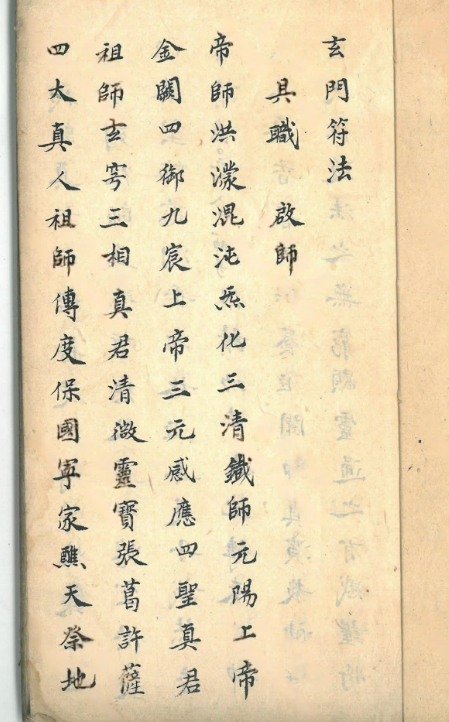 玄門符法
具職啟師
帝師洪濛混沌炁化三清鐵師元陽上帝
金闕四御九宸上帝三元感應四聖真君
祖師玄穹三相真君清微靈寶張葛許薩
四大真人祖師傳度保國寧家醮天祭地